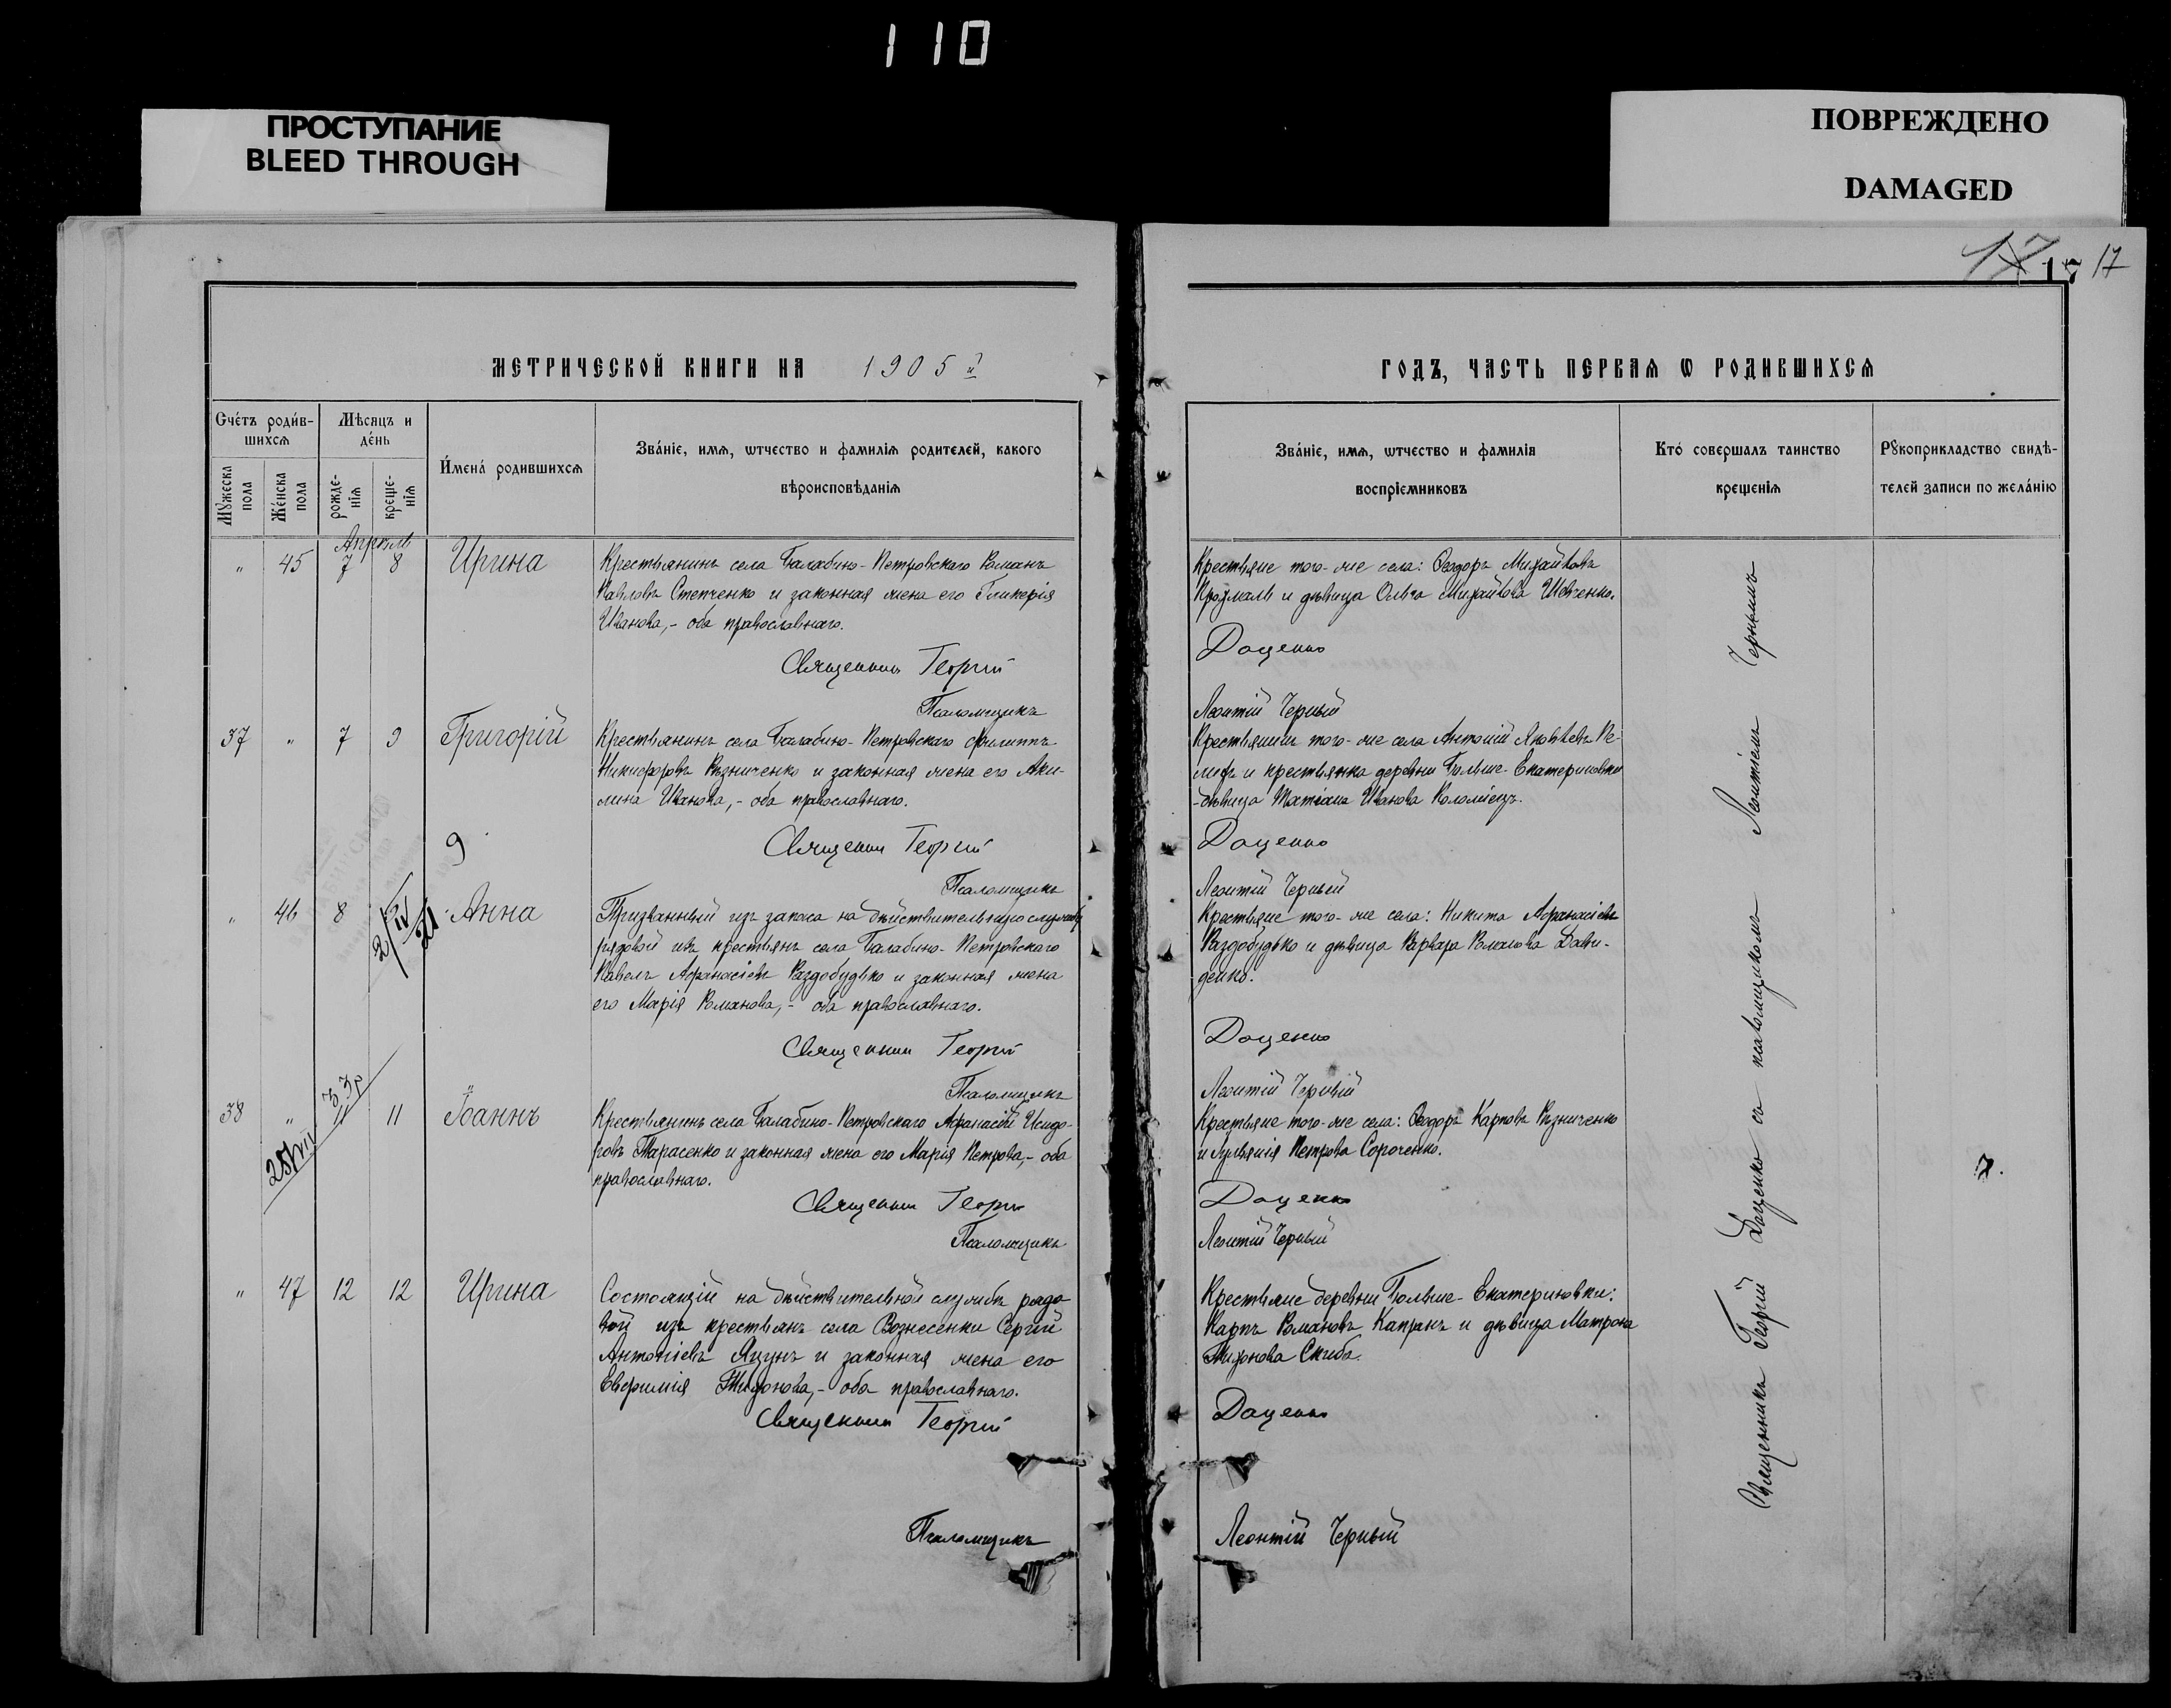 110
ПРОСТУПАНИЕ
BLEED THROUGH
ПОВРЕЖДЕНО
DAMAGED
17 17 17
МЕТРИЧЕСКОЙ КНИГИ НА 1905й
ГОДЪ, ЧАСТЬ ПЕРВАѦ Ѡ РОДИВШИХСѦ
Счéтъ родив-
шихсѧ
Мѣсяцъ и
дéнь
Мꙋжеска пола
Жéнска пола
рожде-
нїѧ
креще-
нїѧ
Имена́ родившихсѧ
Зва́нїе, имѧ, ѡтчество и фамилїѧ родителей, какого
вѣроисповѣданїѧ
Зва́нїе, имѧ, ѡтчество и фамилїѧ
воспрїемниковъ
Кто́ совершалъ таинство
крещенїѧ
Рꙋкоприкладство свидѣ-
телей записи по жела́нїю
Апрель
" 45 7 8 Ирина
Крестьянинъ села Балабино-Петровскаго Романъ
Павловъ Степченко и законная жена его Гликерія
Иванова,- оба православнаго.
Священник Георгій
Псаломщикъ
Крестьяне того-же села: Ѳеодоръ Михайловъ
и дѣвица Ольга Михайлова Шевченко.
Доценко
Леонтій Черный
37 " 7 9 Григорій
Крестьянинъ села Балабино-Петровскаго Филиппъ
Никифоровъ Рѣзниченко и законная жена его Аки-
лина Иванова,- оба православнаго.
Священник Георгій
Псаломщикъ
Крестьянинъ того-же села Антоній Яковлевъ Ре-
и крестьянка деревни Больше-Екатериновки
-дѣвица Татіана Иванова Коломіецъ.
Доценко
Леонтій Черный
9
" 46 8 Анна
21
Призванный изъ запаса на дѣйствительную службу
рядовой изъ крестьянъ села Балабино-Петровскаго
Павелъ Афанасіевъ Раздобудько и законная жена
его Марія Романова,- оба православнаго.
Священник Георгій
Псаломщикъ
Крестьяне того-же села: Никита Афанасіевъ
Раздобудько и дѣвица Варвара Романова Дави-
денко.
Доценко
Леонтій Черный
38 " 11 11 Іоаннъ
Крестьянинъ села Балабино-Петровскаго Афанасій Исидо-
ровъ Тарасенко и законная жена его Марія Петрова,- оба
православнаго.
Священник Георгій
Псаломщикъ
Крестьяне того-же села: Ѳеодоръ Карповъ Рѣзниченко
и Петрова Сороченко.
Доценко
Леонтій Черный
" 47 12 12 Ирина
Состоящій на дѣйствительной службѣ рядо
вой изъ крестьянъ села Вознесенки Сергій
Антоніевъ Яцунъ и законная жена его
Евфимія Тихонова,- оба православнаго.
Священник Георгій
Псаломщикъ
Крестьяне деревни Больше-Екатериновки:
Карпъ Романовъ Капранъ и дѣвица Матрона
Тихонова Скиба.
Доценко
Леонтій Черный
Священникъ Георгій Доценко съ псаломщикомъ Леонтіемъ Чернымъ